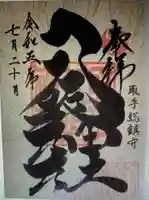 奉拝
取手総鎮守
八坂神社
令和三年
七月二十日